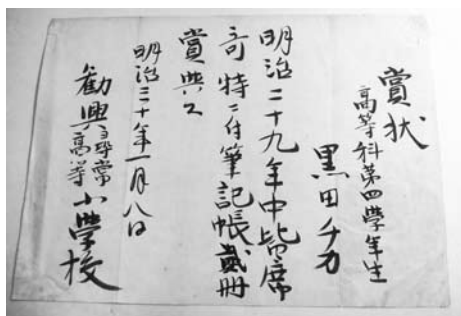 賞状
高等科第四學年生
黒田千力
明治二十九年中皆席
奇特ニ付筆記帳貳冊
賞與ス
明治三十年一月八日
勸興尋常高等小學校